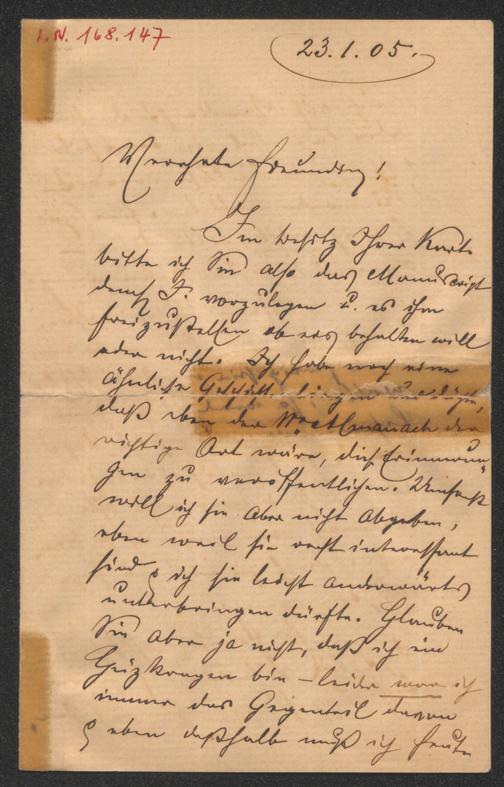 I.N. 168.147
23.1.05.
Verehrte Freundin!
Im Besitz Ihrer Karte
bitte ich Sie also das Manuscript
dem H. J. vorzulegen u. es ihm
freizustellen ob ers behalten will
oder nicht. Ich habe noch eine
ähnliche
daß eben der Almanach der
richtige Ort wäre, diese Erinnerun=
gen zu veröffentlichen. Umsonst
will ich sie aber nicht abgeben,
eben weil sie recht interessant
sind & ich sie leicht anderwärts
unterbringen dürfte. Glauben
Sie aber ja nicht, daß ich ein
Geizkragen bin – leider war ich
immer das Gegenteil davon
& eben deßhalb muß ich heute